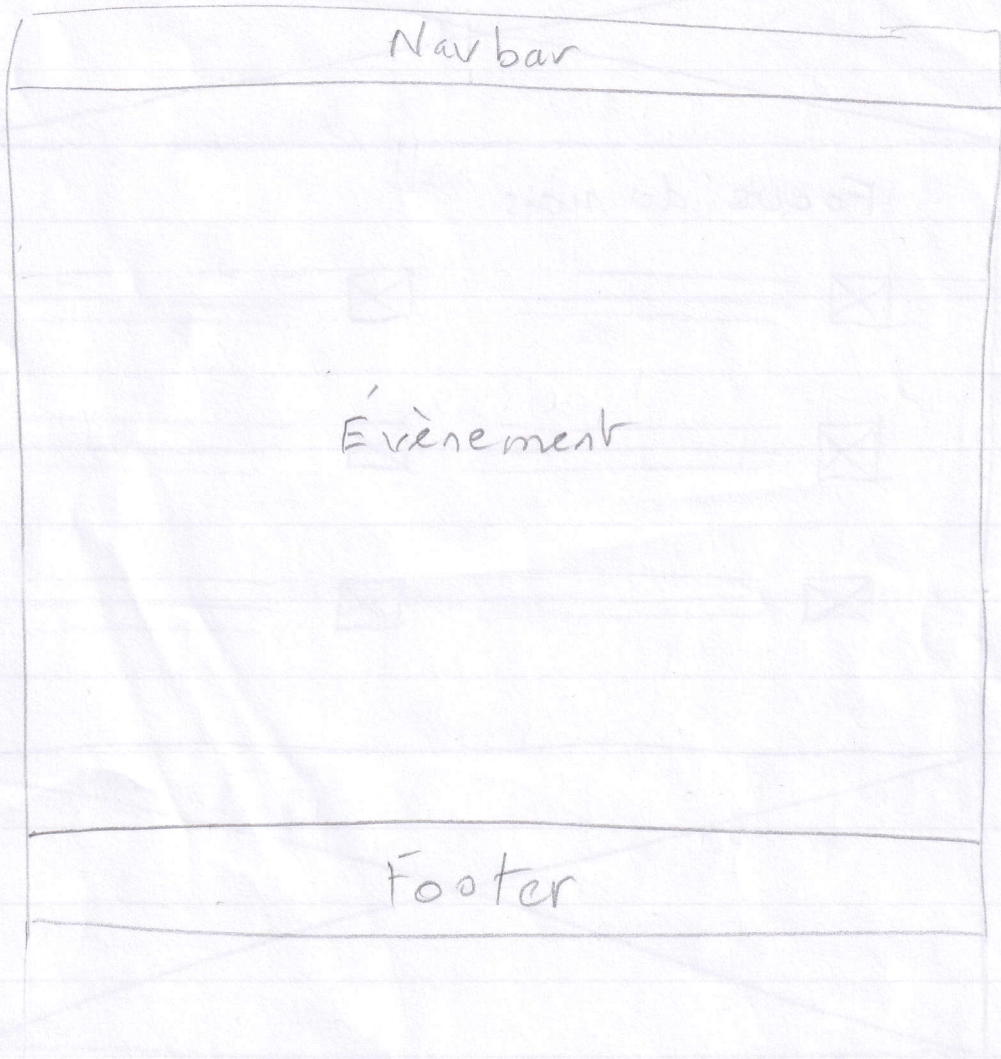 Navbar
Évènement
Footer